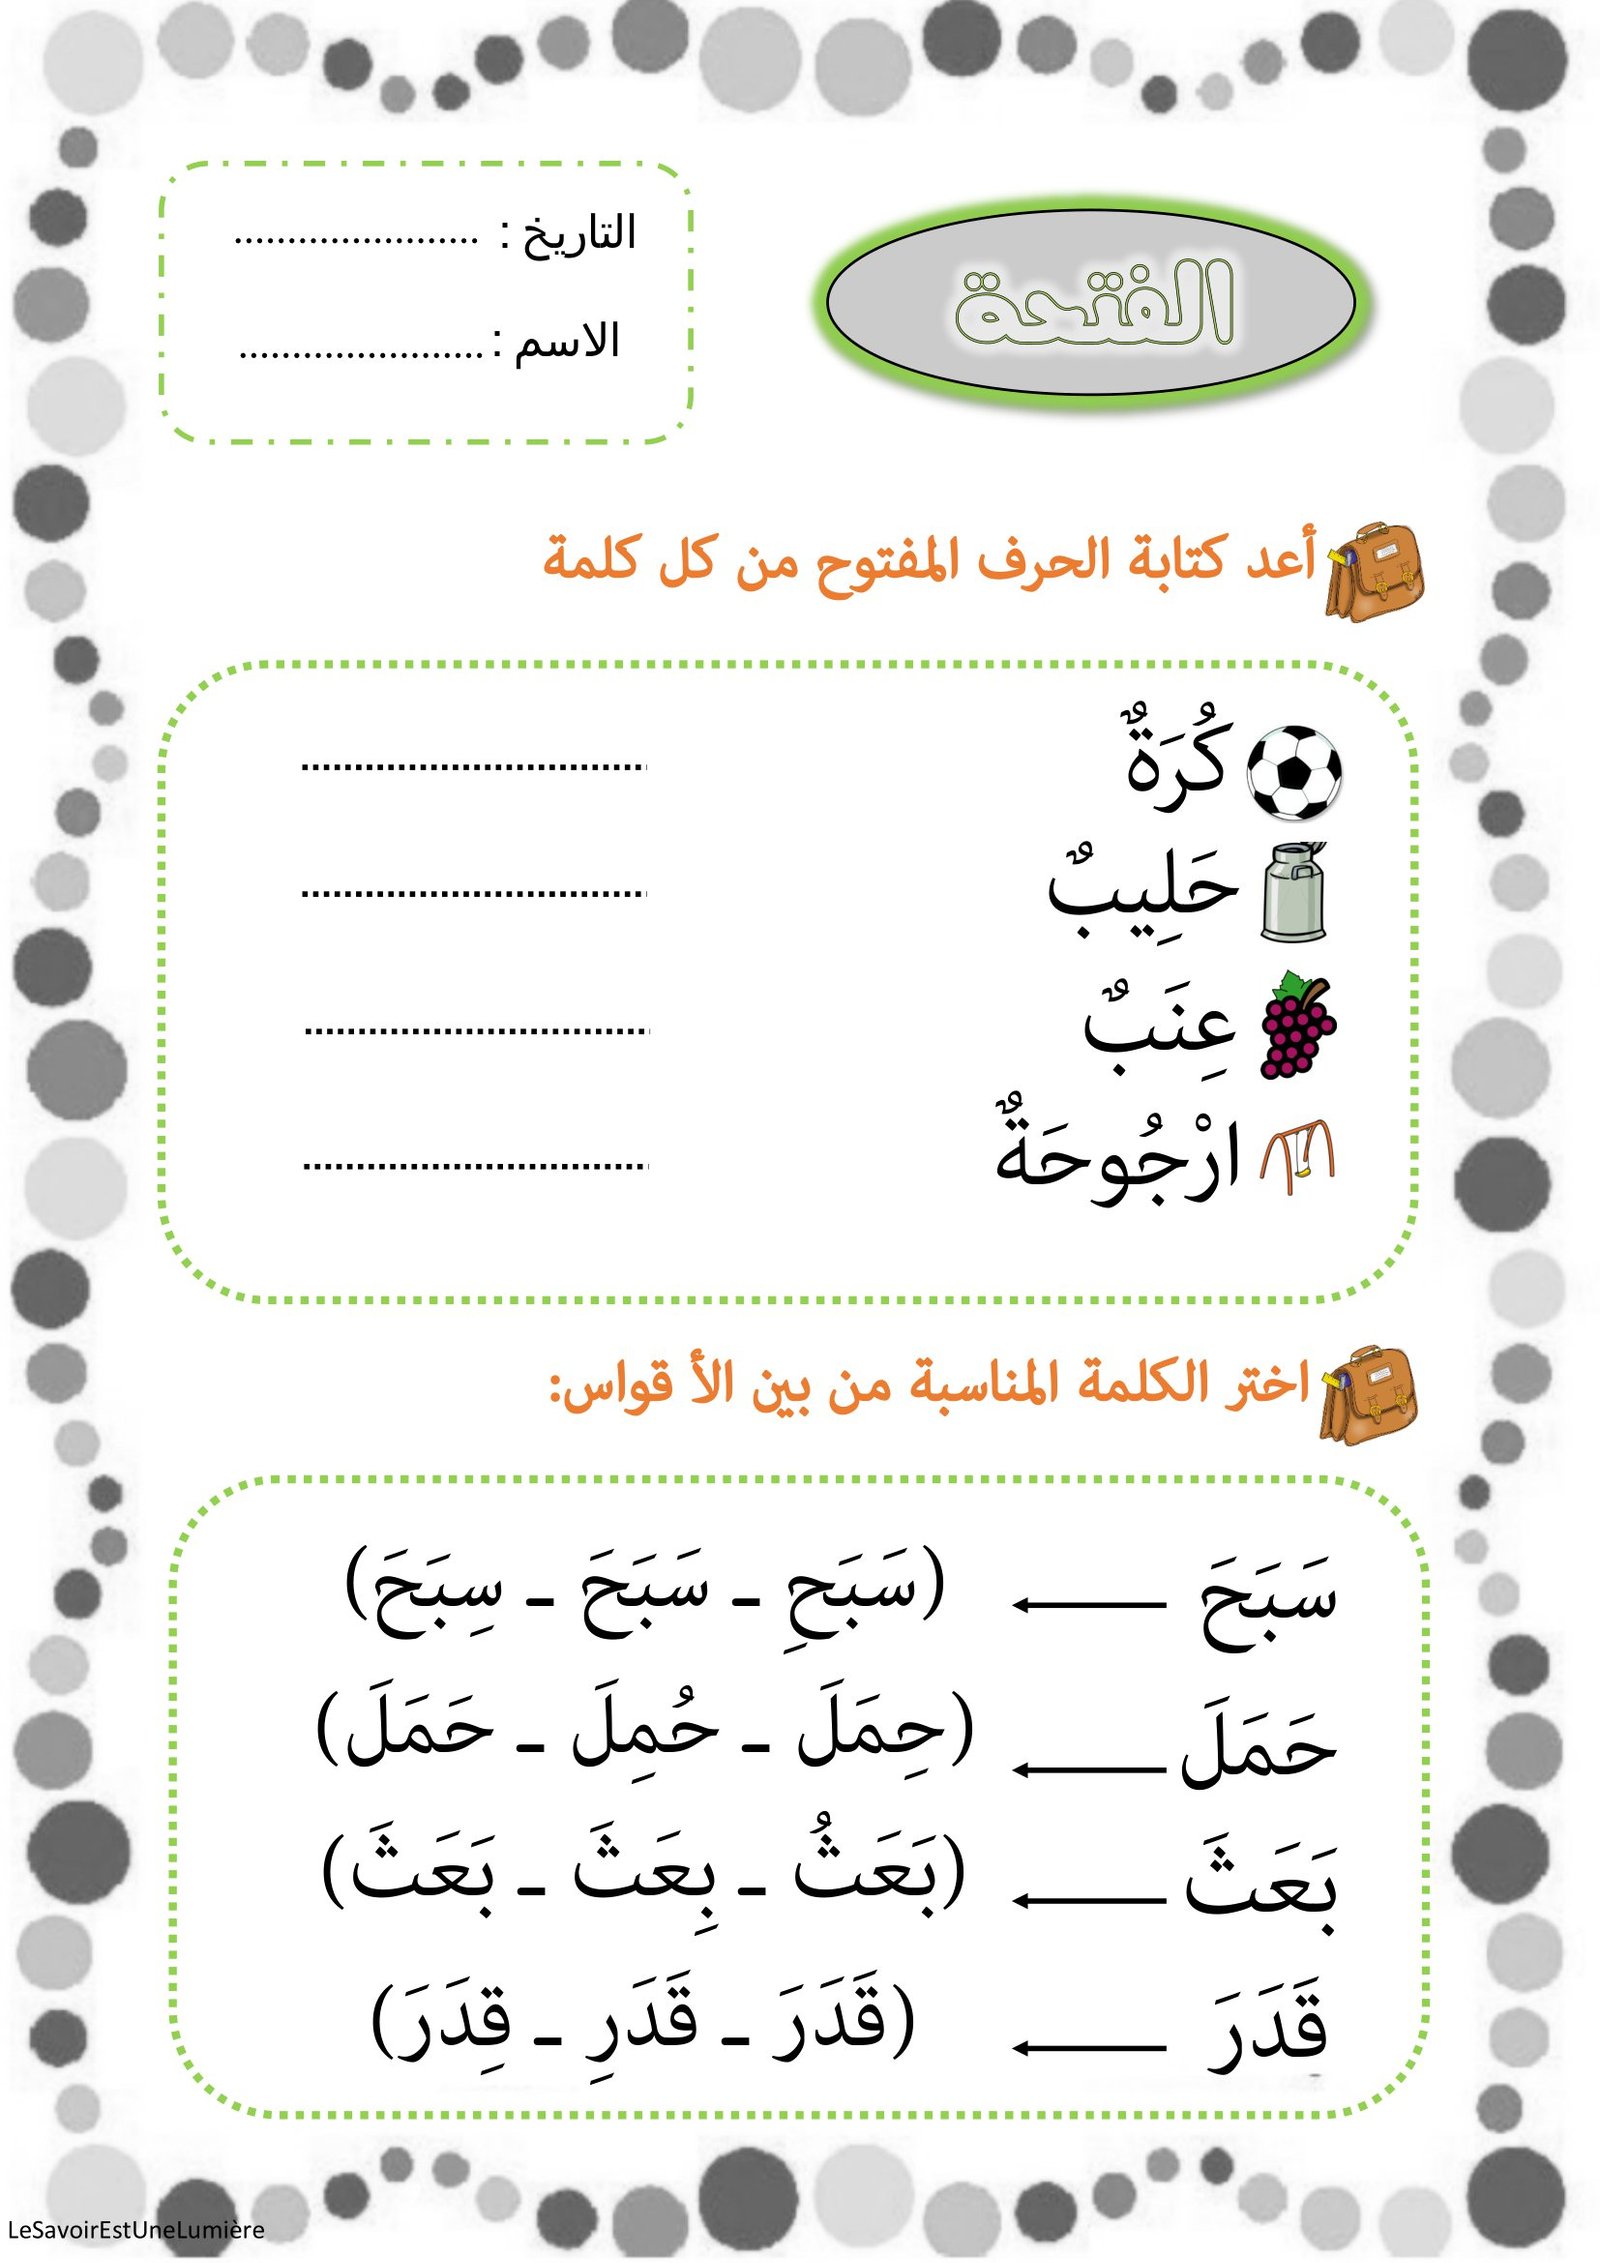 الفتحة
التاريخ : .......................
الاسم : .......................
أعد كتابة الحرف المفتوح من كل كلمة
كُرَةٌ ................................
حَلِيبٌ ................................
عِنَبٌ ................................
ارْجُوحَةٌ ................................
اختر الكلمة المناسبة من بين الأ قواس:
سَبَحَ ← (سَبَحِ - سَبَحَ - سِبَحَ)
حَمَلَ ← (حِمَلَ - حُمِلَ - حَمَلَ)
بَعَثَ ← (بَعَثُ - بِعَثَ - بَعَثَ)
قَدَرَ ← (قَدَرَ - قَدَرِ - قِدَرَ)
LeSavoirEstUneLumière